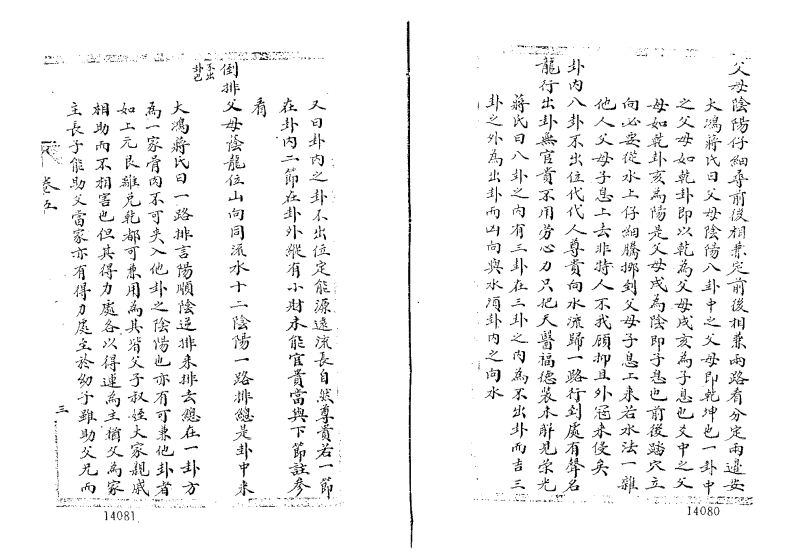 父母陰陽仔細尋前後相兼定前後相兼兩路看分定兩邊安
大鴻蔣氏曰父母陰陽八卦中之父母即乾坤也一卦中
之父母如乾卦即以乾為父母戌亥為子息也爻中之父
母如乾卦亥為陽是父母戌為陰即子息也前後踏穴立
向必要從水上仔細騰挪到父母子息上來若水法一雜
他人父母子息上去非特人不我顧抑且外寇來侵矣
卦內八卦不出位代代人尊貴向水流歸一路行到處有聲名
龍行出卦無官貴不用勞心力只把天醫福德裝未解見榮光
蔣氏曰八卦之內有三卦在三卦之內為不出卦而吉三
卦之外為出卦而凶向與水須卦內之向水
14080
又曰卦內之卦不出位定能源遠流長自然尊貴若一節
在卦內二節在卦外縱有小財未能官貴當與下節註參
看
倒排父母蔭龍位山向同流水十二陰陽一路排總是卦中來
不出
卦也
大鴻蔣氏曰一路排言陽順陰逆排來排去總在一卦方
為一家骨肉不可夾入他卦之陰陽也亦有可兼他卦者
如上元艮離兌乾都可兼用為其皆父子叔姪大家親戚
相助而不相害也但其得力處各以得運為主猶父為家
主長子能助父當家亦有得力處至於幼子雖助父兄而
卷五
三
14081